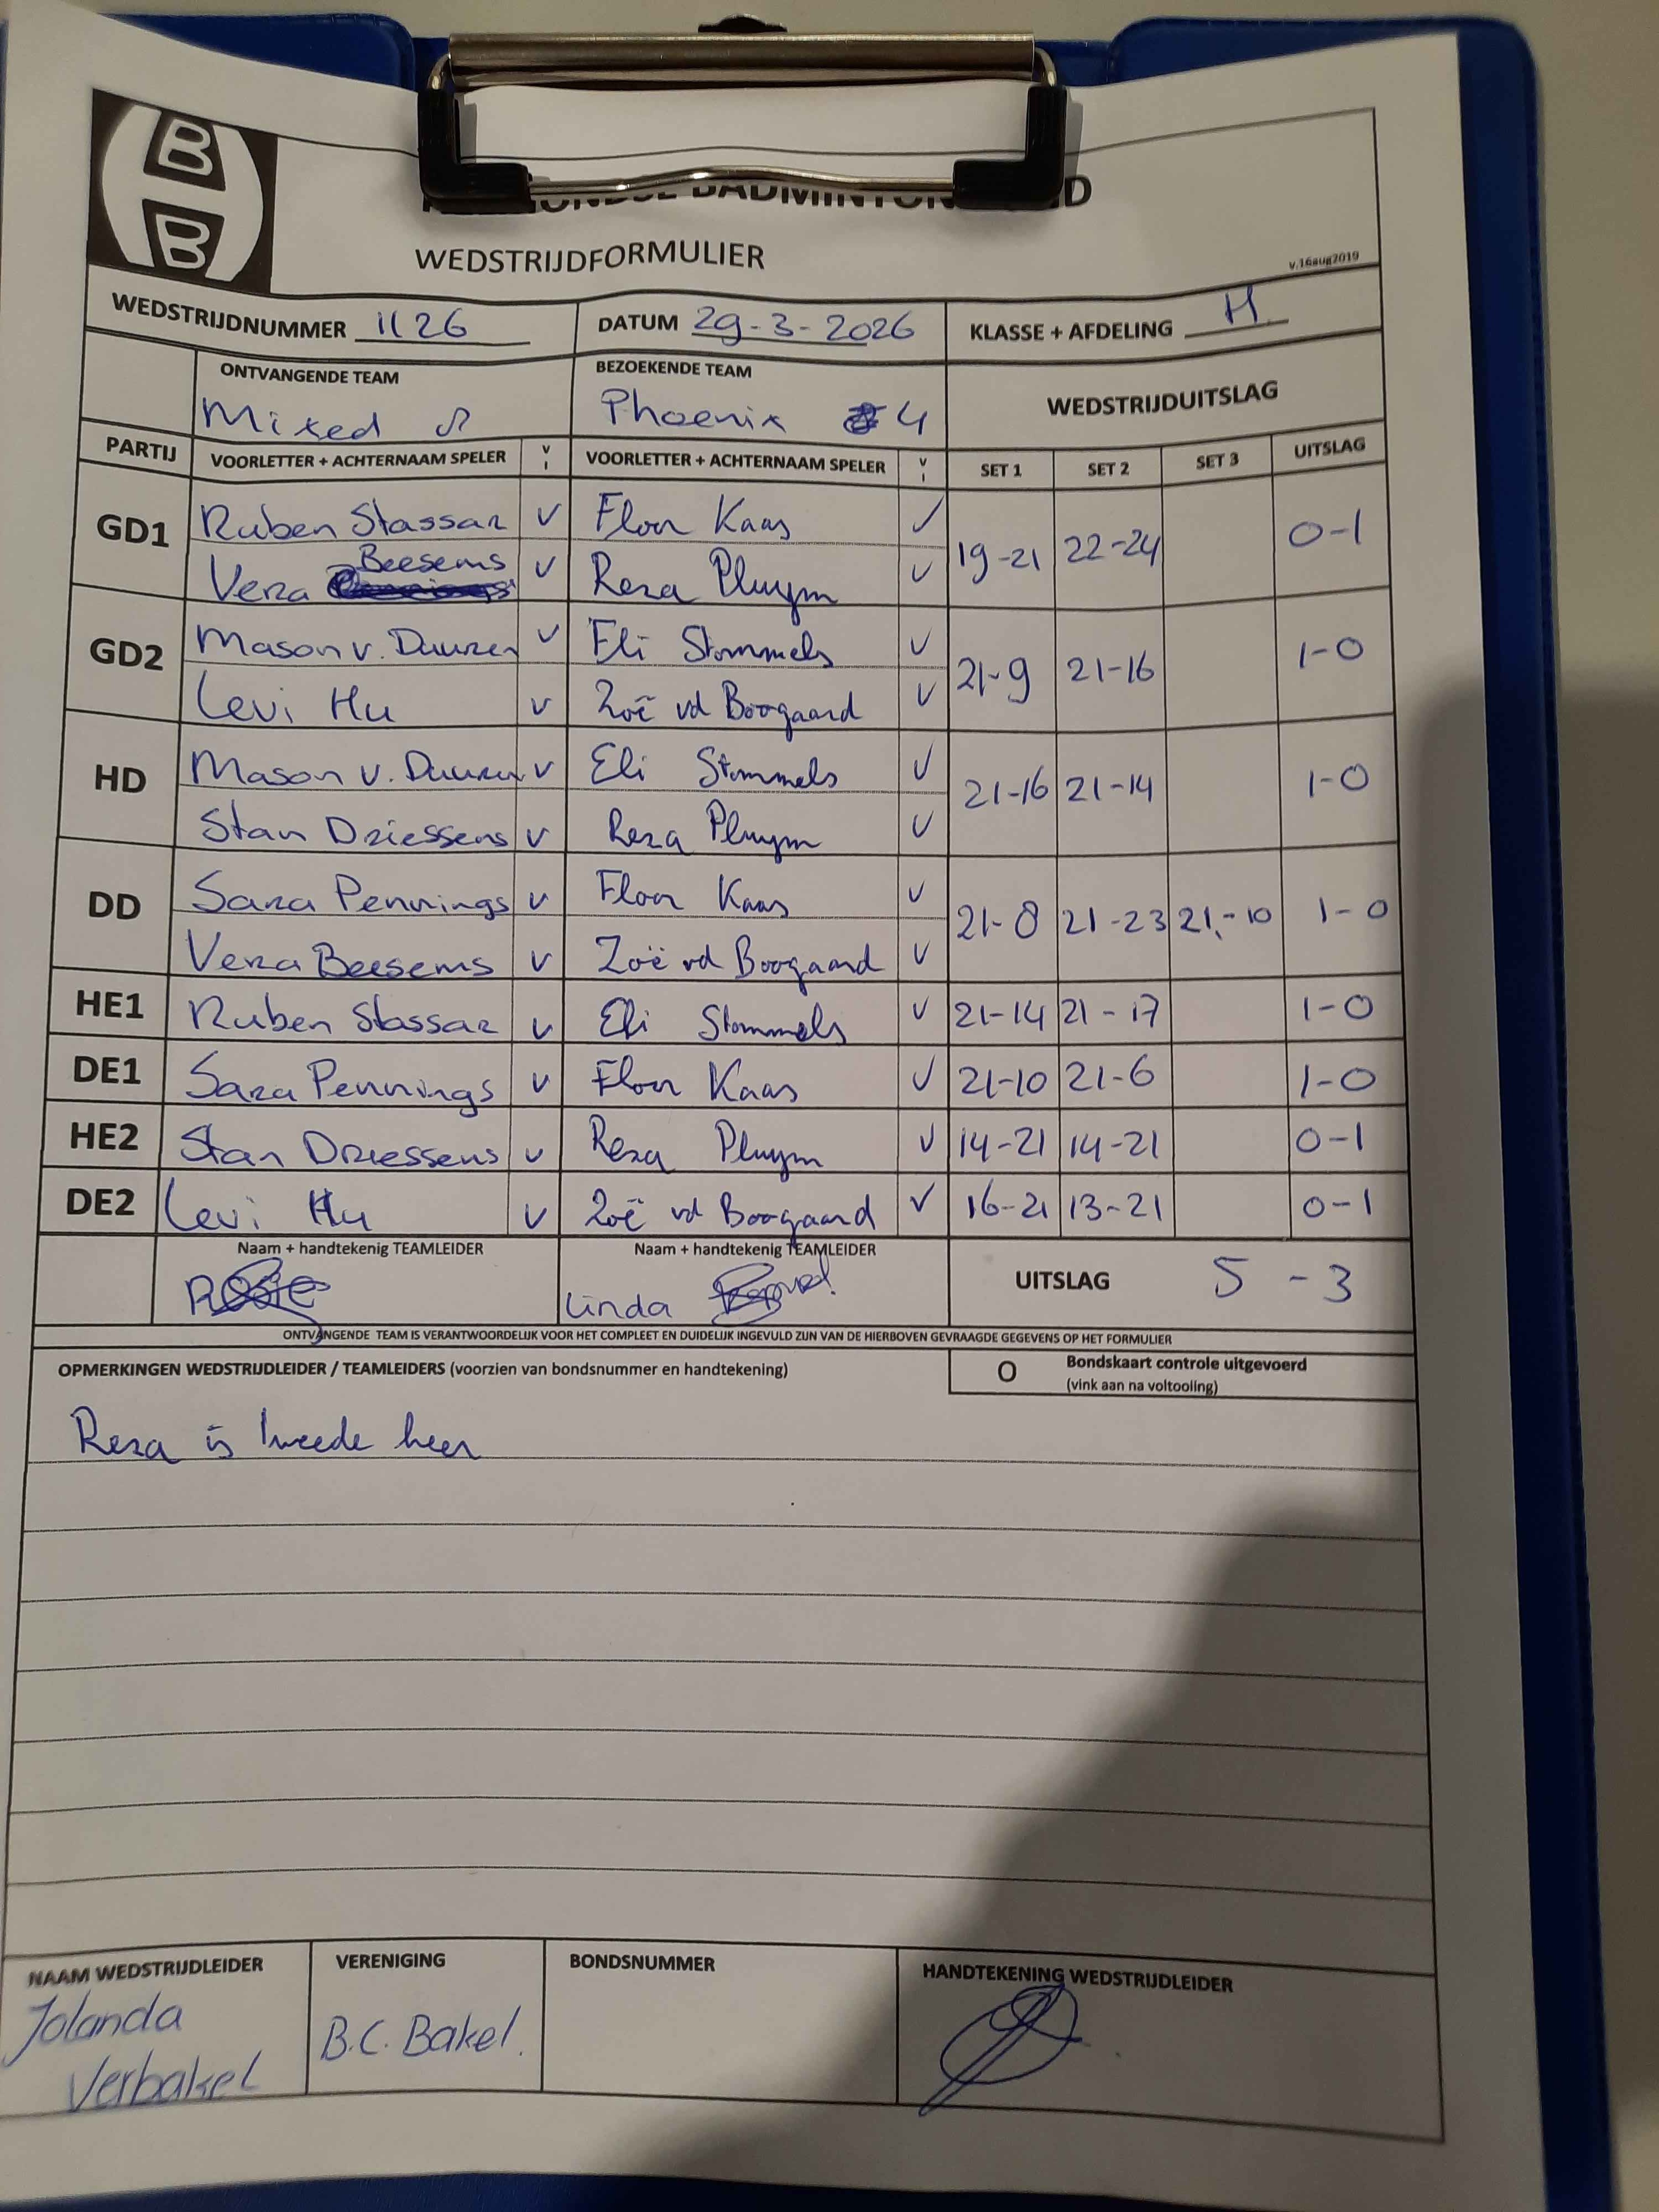 B
B
BADMINTON
WEDSTRIJDFORMULIER
v.16aug2019
WEDSTRIJDNUMMER 1126
DATUM 29-3-2026
KLASSE + AFDELING H
ONTVANGENDE TEAM
BEZOEKENDE TEAM
WEDSTRIJDUITSLAG
Mixed
Phoenix 4
PARTIJ VOORLETTER + ACHTERNAAM SPELER V I VOORLETTER + ACHTERNAAM SPELER V I SET 1 SET 2 SET 3 UITSLAG
GD1 Ruben Stassar V Floor Kaas V 19-21 22-24 0-1
Vera Beesems V Reza Pluym V
GD2 Mason v. Duuren V Eli Stommels V 21-9 21-16 1-0
Levi Hu V Zoë vd Boogaard V
HD Mason v. Duuren V Eli Stommels V 21-16 21-14 1-0
Stan Driessens V Reza Pluym V
DD Sara Pennings V Floor Kaas V 21-8 21-23 21-10 1-0
Vera Beesems V Zoë vd Boogaard V
HE1 Ruben Stassar V Eli Stommels V 21-14 21-17 1-0
DE1 Sara Pennings V Floor Kaas V 21-10 21-6 1-0
HE2 Stan Driessens V Reza Pluym V 14-21 14-21 0-1
DE2 Levi Hu V Zoë vd Boogaard V 16-21 13-21 0-1
Naam + handtekenig TEAMLEIDER
Naam + handtekenig TEAMLEIDER
UITSLAG 5-3
Linda
ONTVANGENDE TEAM IS VERANTWOORDELIJK VOOR HET COMPLEET EN DUIDELIJK INGEVULD ZIJN VAN DE HIERBOVEN GEVRAAGDE GEGEVENS OP HET FORMULIER
OPMERKINGEN WEDSTRIJDLEIDER / TEAMLEIDERS (voorzien van bondsnummer en handtekening)
O Bondskaart controle uitgevoerd
(vink aan na voltooling)
Reza is tweede heer
NAAM WEDSTRIJDLEIDER
VERENIGING
BONDSNUMMER
HANDTEKENING WEDSTRIJDLEIDER
Jolanda
Verbakel
B.C. Bakel.